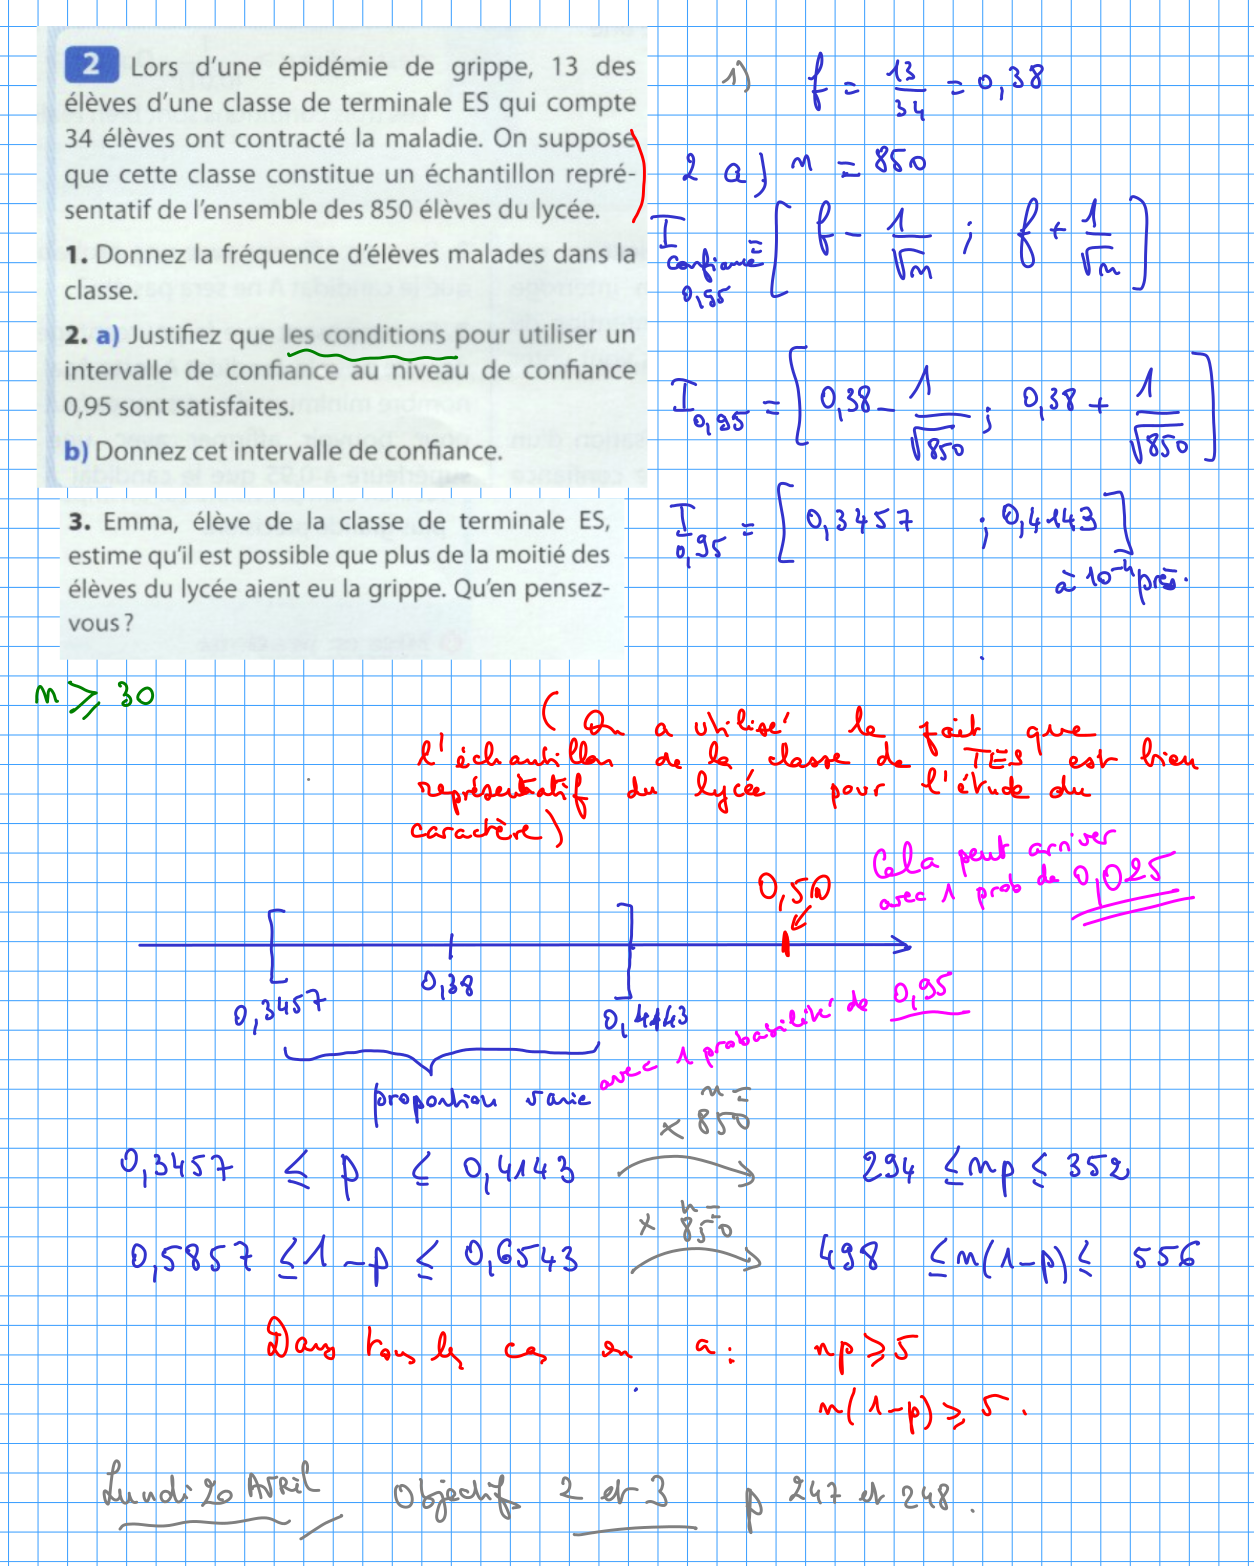 2 Lors d'une épidémie de grippe, 13 des
élèves d'une classe de terminale ES qui compte
34 élèves ont contracté la maladie. On suppose
que cette classe constitue un échantillon repré-
sentatif de l'ensemble des 850 élèves du lycée.
1. Donnez la fréquence d'élèves malades dans la
classe.
2. a) Justifiez que les conditions pour utiliser un
intervalle de confiance au niveau de confiance
0,95 sont satisfaites.
b) Donnez cet intervalle de confiance.
3. Emma, élève de la classe de terminale ES,
estime qu'il est possible que plus de la moitié des
élèves du lycée aient eu la grippe. Qu'en pensez-
vous ?
1) f = 13/34 = 0,38
2 a) n = 850
I confiance 0,95 = [ f - 1/√n ; f + 1/√n ]
I 0,95 = [ 0,38 - 1/√850 ; 0,38 + 1/√850 ]
I 0,95 = [ 0,3457 ; 0,4143 ]
à 10⁻⁴ près.
n ≥ 30
( On a utilisé le fait que
l'échantillon de la classe de TES est bien
représentatif du lycée pour l'étude du
caractère)
Cela peut arriver
avec 1 prob de 0,025
0,50
0,3457 0,38 0,4143
avec 1 probabilité de 0,95
proportion varie
n =
× 850
0,3457 ≤ p ≤ 0,4143 294 ≤ np ≤ 352
n =
× 850
0,5857 ≤ 1 - p ≤ 0,6543 498 ≤ n(1-p) ≤ 556
Dans tous les cas on a : np ≥ 5
n(1-p) ≥ 5.
Lundi 20 Avril Objectifs 2 et 3 p 247 et 248.